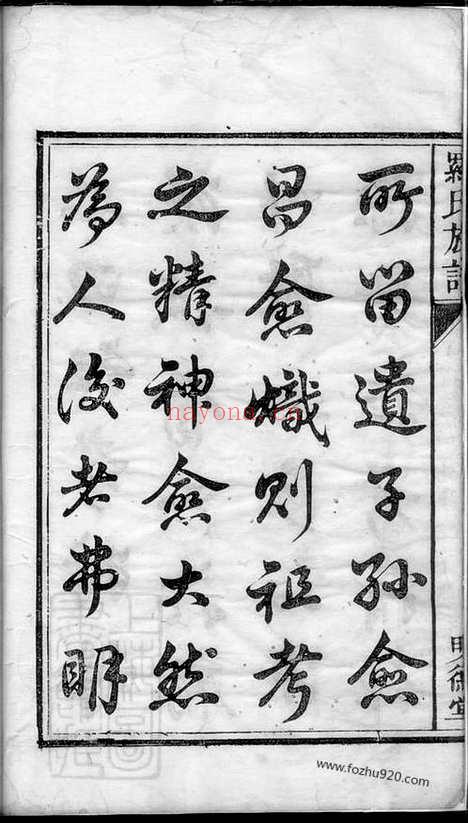 羅氏族譜
明德堂
所留遺子孫愈
昌愈熾則祖考
之精神愈大然
為人後者弗明
nayona.cn
www.fozhu920.com